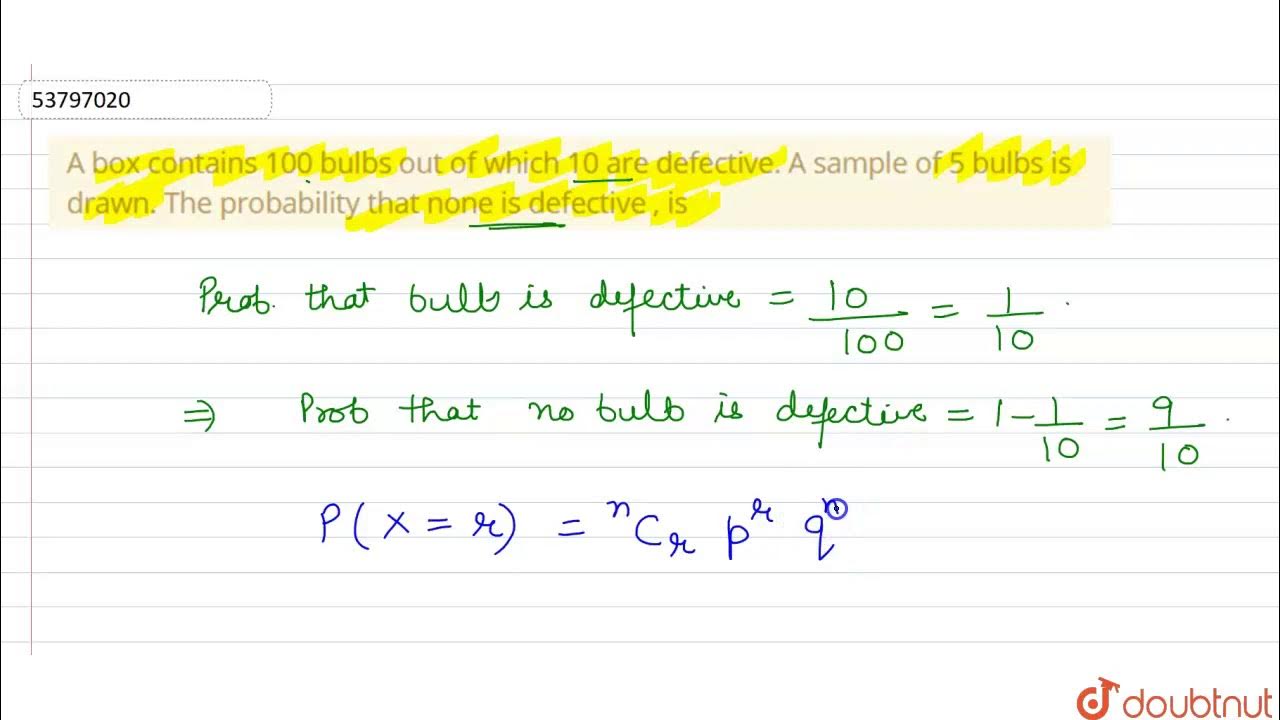 53797020
A box contains 100 bulbs out of which 10 are defective. A sample of 5 bulbs is
drawn. The probability that none is defective , is
Prob. that bulb is defective = 10/100 = 1/10 .
⇒ Prob that no bulb is defective = 1 - 1/10 = 9/10 .
P(X = r) = ⁿCᵣ pʳ qⁿ
doubtnut